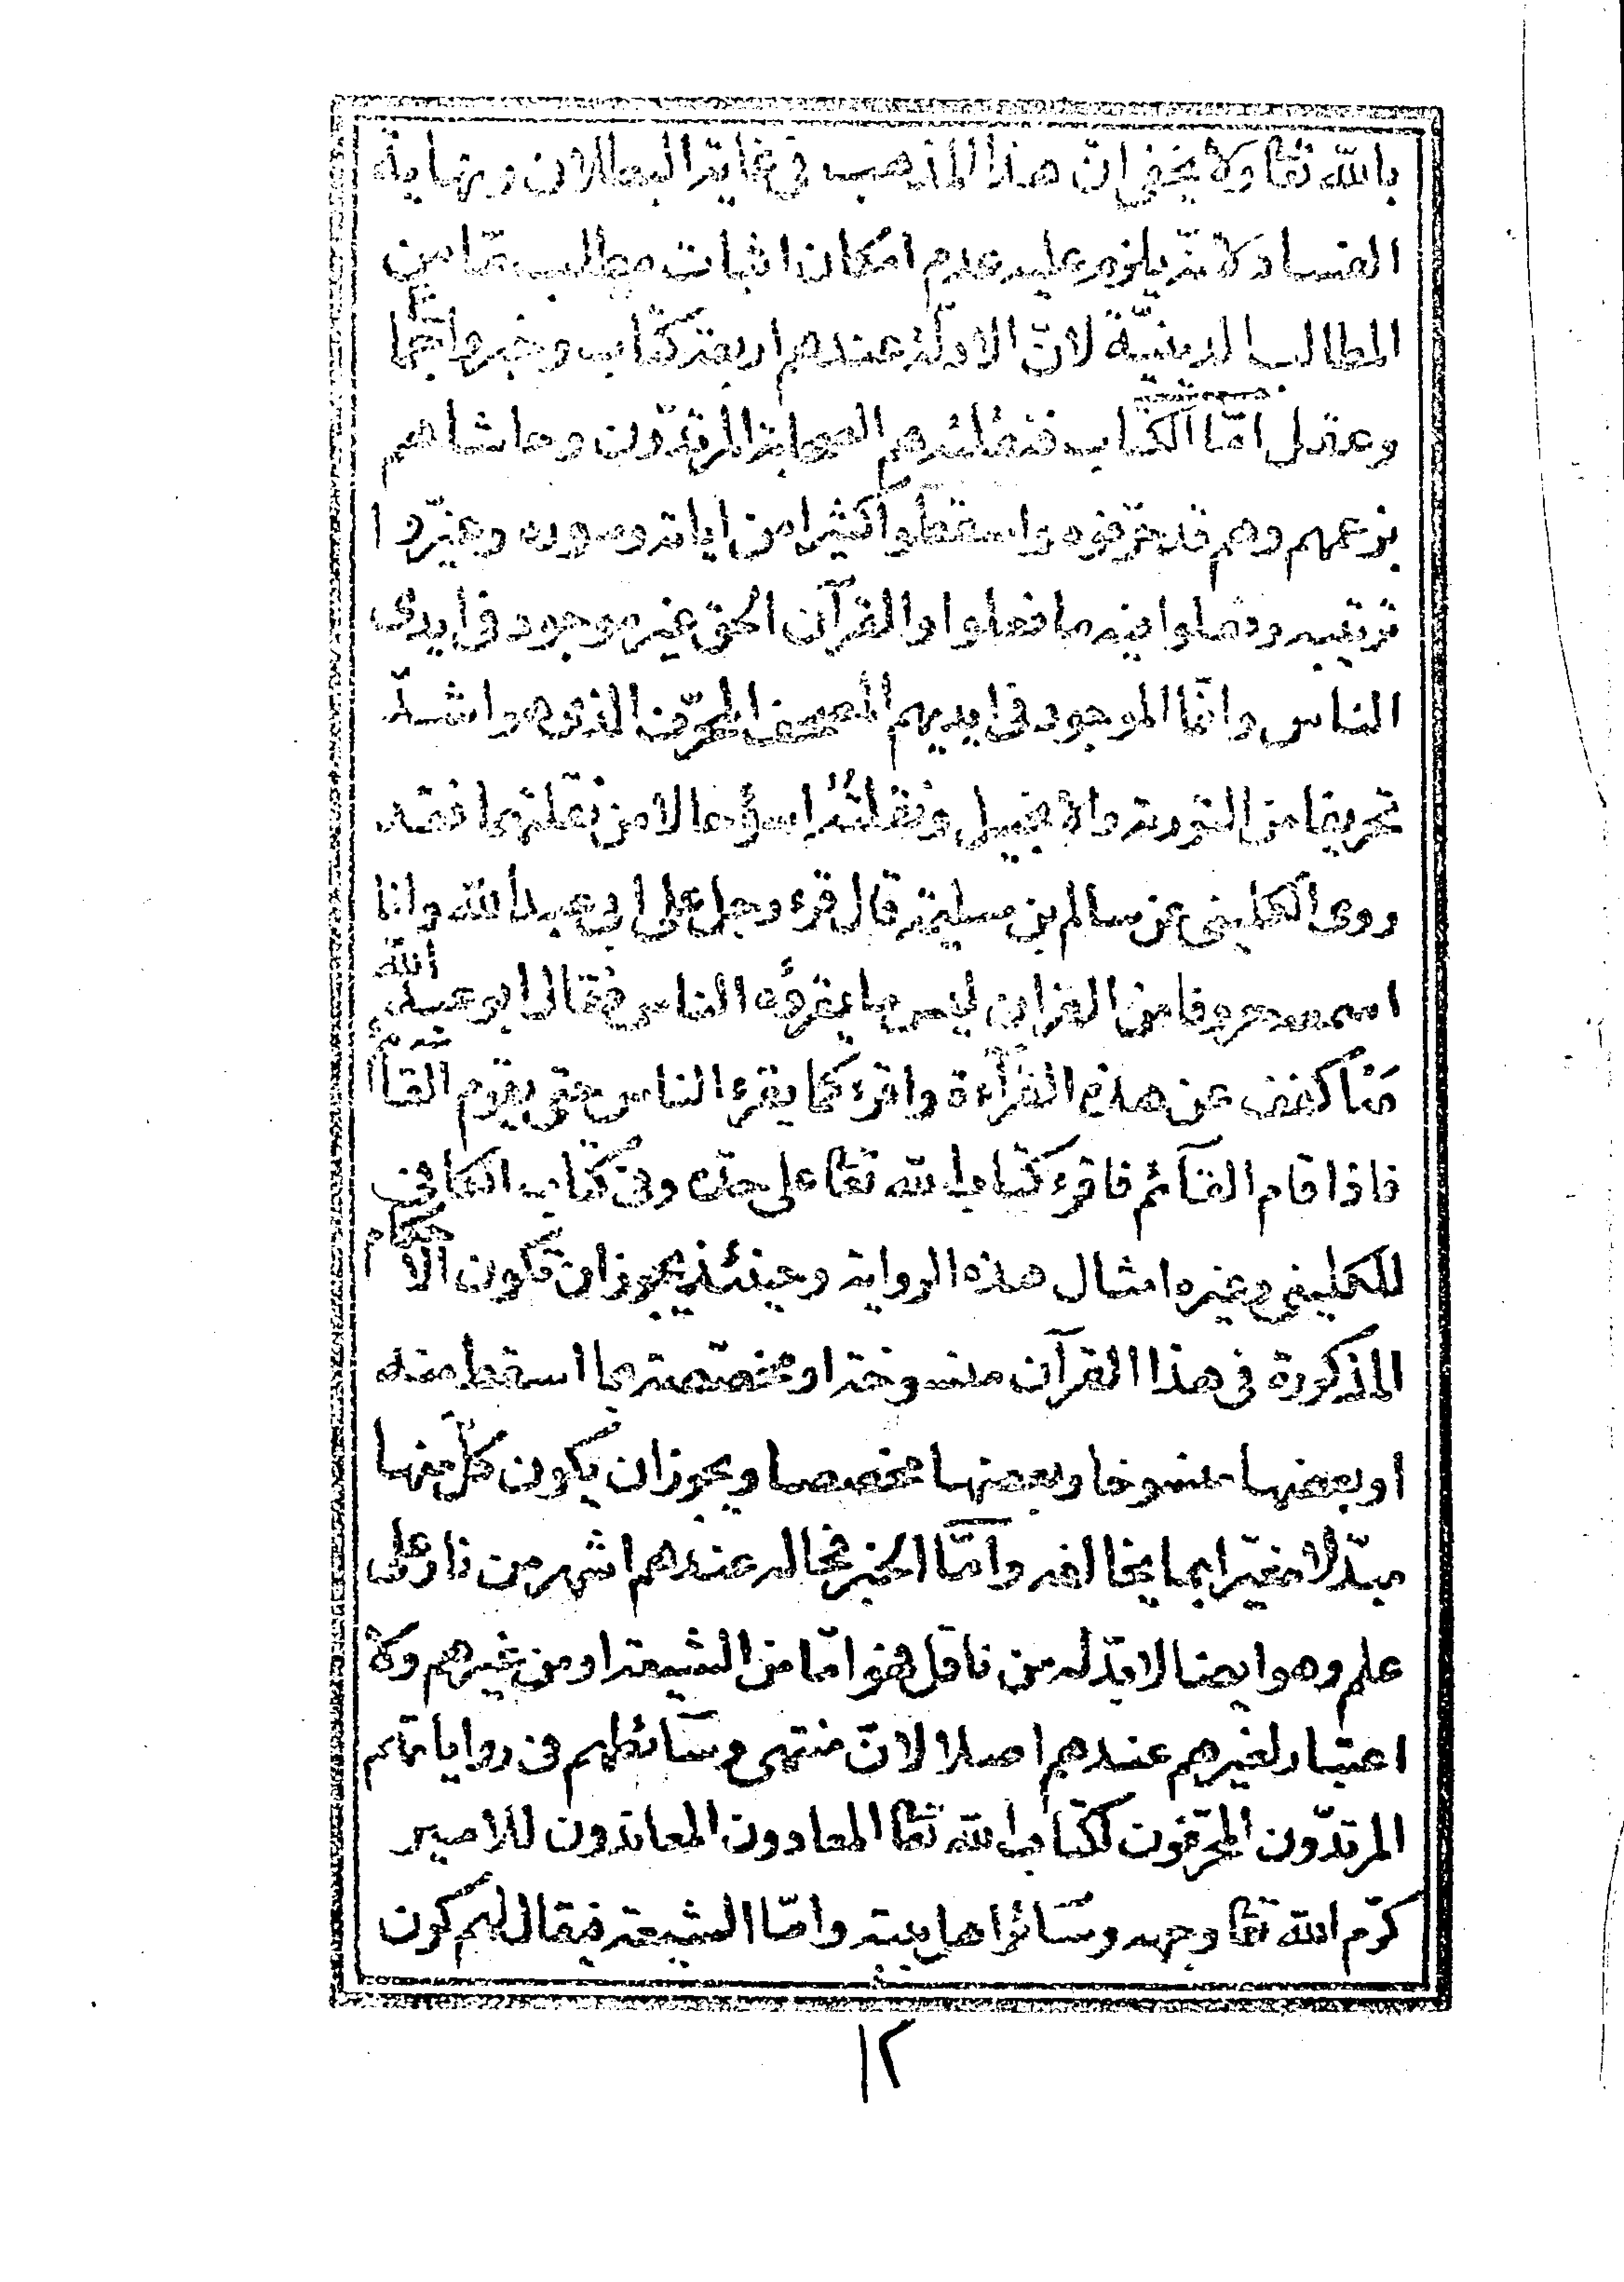 بالله تعا ولا يخفى انّ هذا المذهب فى غاية البطلان ونهاية
الفساد لانه يلزم عليه عدم امكان اثبات مطلب مّا من
المطالب الدينيّة لانّ الادلّة عندهم اربعة كتاب وخبر واجماع
وعقل امّا الكتاب فنقلته هم الصحابة المرتدّون وحاشاهم
بزعمهم وهم قد حرّفوه واسقطوا كثيرا من اياته وسوره وغيّروا
ترتيبه وفعلوا فيه ما فعلوا والقرآن الحق غير موجود فى ايدى
الناس وانّما الموجود فى ايديهم المصحف المحرّف الذى هو اشدّ
تحريفا من التورية والانجيل ونقلته اسوء حالا من نقلتهما فقد
روى الكلينى عن سالم بن مسلمة قال قرء رجل على ابى عبد الله وانا
اسمع حروفا من القران ليس ما يقرؤه الناس فقال ابو عبد الله
مَهْ اكفف عن هذه القرآءة واقرء كما يقرء الناس حتى يقوم القآئم
فاذا قام القآئم فاقرء كتاب الله تعا على حده وفى كتاب الكافى
للكلينى وغيره امثال هذه الرواية وحينئذ يجوز ان تكون الاحكام
المذكورة فى هذا القرآن منسوخة او مخصّصة بما اسقط منه
او بعضها منسوخا وبعضها مخصصا ويجوز ان يكون كلّ منها
مبدّلا مغيّرا بما يخالفه وامّا الخبر فحاله عندهم اشهر من نار على
علم وهو ايضا لا بدّ له من ناقل فهو امّا من الشيعة او من غيرهم ولا
اعتبار لغيرهم عندهم اصلا لانّ منتهى وسآئطهم فى رواياتهم
المرتدّون المحرّفون لكتاب الله تعا المعادون المعاندون للامير
كرّم الله تعا وجهه وسآئر اهل بيته وامّا الشيعة فيقال لهم كون
١٢